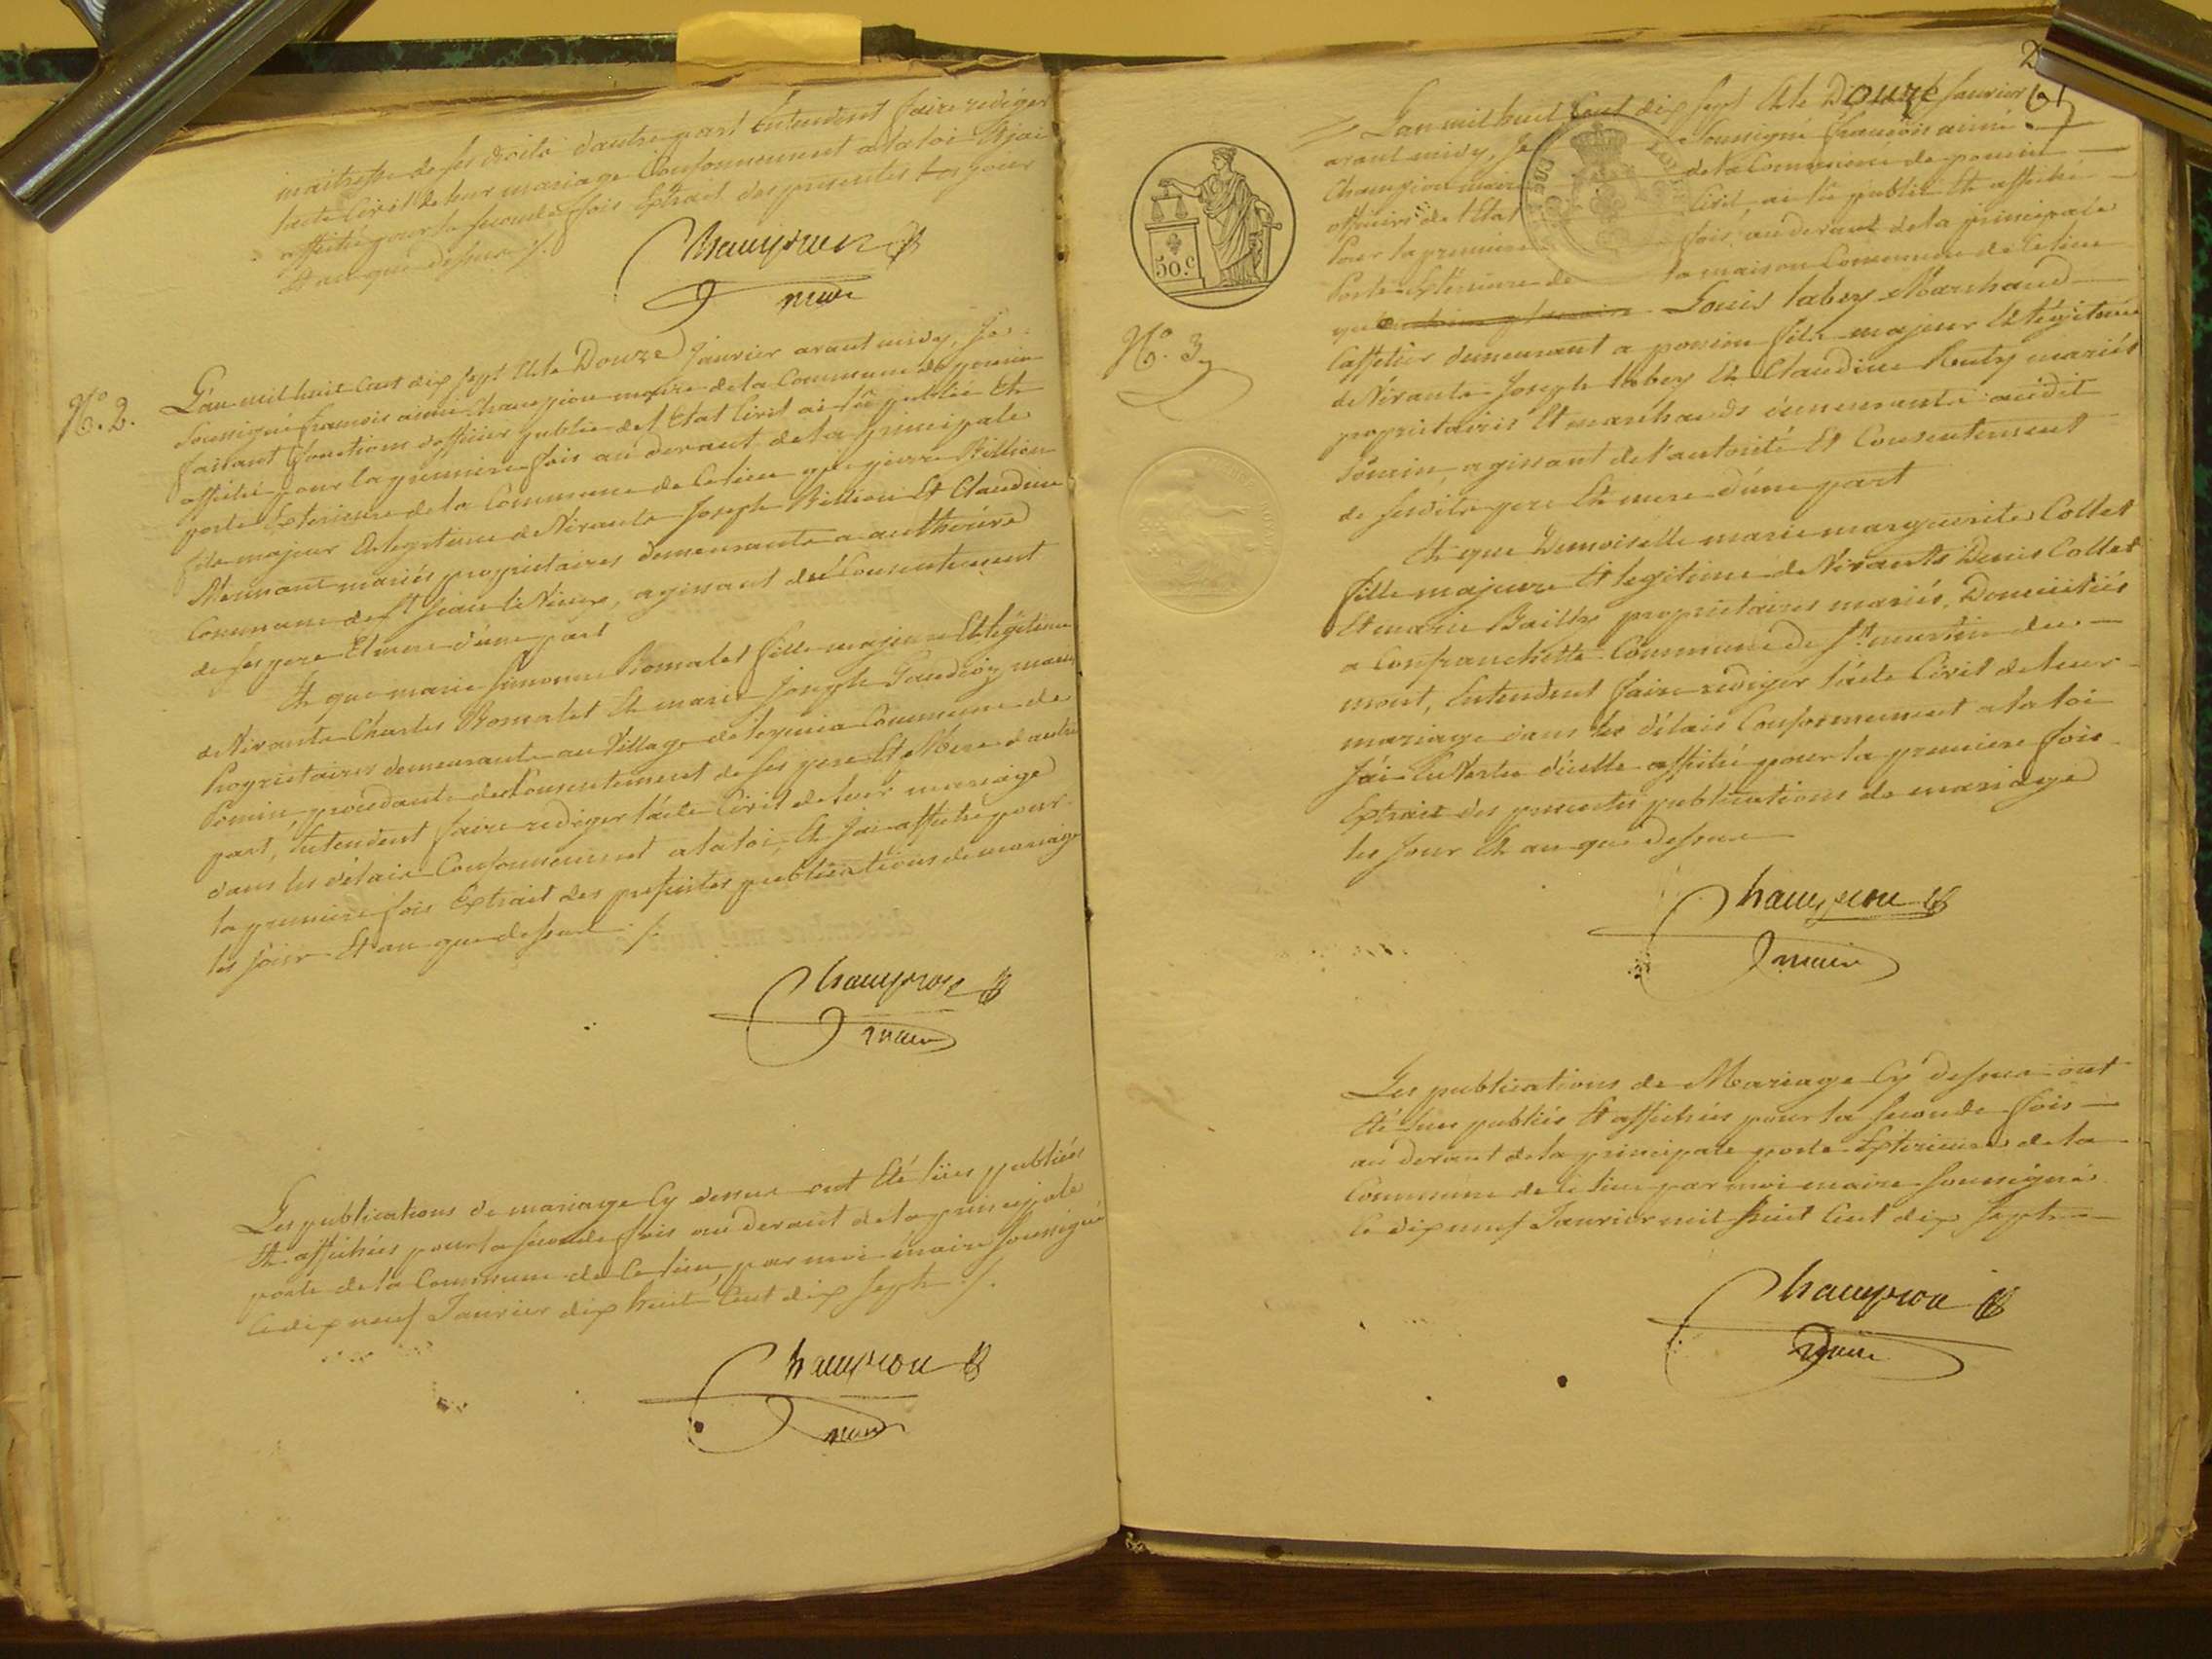 maitresse de ses droits d'autre part Entendent faire rediger
l'acte Civil de leur mariage Conformement a la loi Et j'ai
affiché pour la seconde fois Extrait des presentes les jour
Et an que dessus ./.
Champion
maire
N.o 2.
L'an mil huit Cent dix sept Et le Douze Janvier avant midy, Je
soussigné francois aimé Champion maire de la Commune de poncin
faisant fonctions d'officier public de l'Etat Civil ai lû publié Et
affiché pour la premiere fois au devant de la principale
porte Exterieure de la Commune de Ce lieu que pierre Billion
fils majeur Et legitime de Vivants Joseph Billion Et Claudine
mariés proprietaires demeurants a
Commune de St. Jean le Vieux, agissant du Consentement
de ses pere Et mere d'une part
Et que marie simonne Romalet fille majeure Et legitime
de Vivants Charles Romalet Et marie Joseph Gaudioz mariés
Proprietaires demeurants au Village de Commune de
Poncin, procedante du Consentement de ses pere Et Mere d'autre
part, Entendent faire rediger l'acte Civil de leur mariage
dans les délais Conformement a la loi, Et J'ai affiché pour
la premiere fois Extrait des presentes publications de mariage
les jour Et an que dessus ./.
Champion
maire
Les publications de mariage Cy dessus ont Eté lües publiées
Et affichées pour la seconde fois au devant de la principale
porte de la Commune de Ce lieu, par moi maire soussigné
Ce dix neuf Janvier dix huit Cent dix sept ./.
Champion
maire
2
L'an mil huit Cent dix sept Et le Douze Janvier
avant midy, Je soussigné francois aimé
Champion maire de la Commune de poncin
officier de l'Etat Civil ai lû publié Et affiché
Pour la premiere fois au devant de la principale
Porte Exterieure de la maison Commune de Ce lieu
que Louis labey Marchand
Caffetier demeurant a poncin fils majeur Et légitime
de Vivants Joseph labey Et Claudine mariés
proprietaires Et marchands demeurants audit
Poncin, agissant de l'autorité Et Consentement
de sesdits pere Et mere d'une part
50.c
N.o 3
Et que Demoiselle marie marguerite Collet
fille majeure Et legitime de Vivants Denis Collet
Et marie Bailly proprietaires mariés, Domiciliés
a Confranchette Commune de St. martin du
mont, Entendent faire rediger l'acte Civil de leur
mariage dans les délais Conformement a la loi
J'ai En Vertu d'icelle affiché pour la premiere fois
Extrait des presentes publications de mariage
les Jour Et an que dessus
Champion
maire
Les publications de Mariage Cy dessus ont
Eté lues publiés Et affichées pour la seconde fois
au devant de la principale porte Extérieure de la
Commune de Ce lieu par moi maire soussigné
Ce dix neuf Janvier mil huit Cent dix sept
Champion
maire